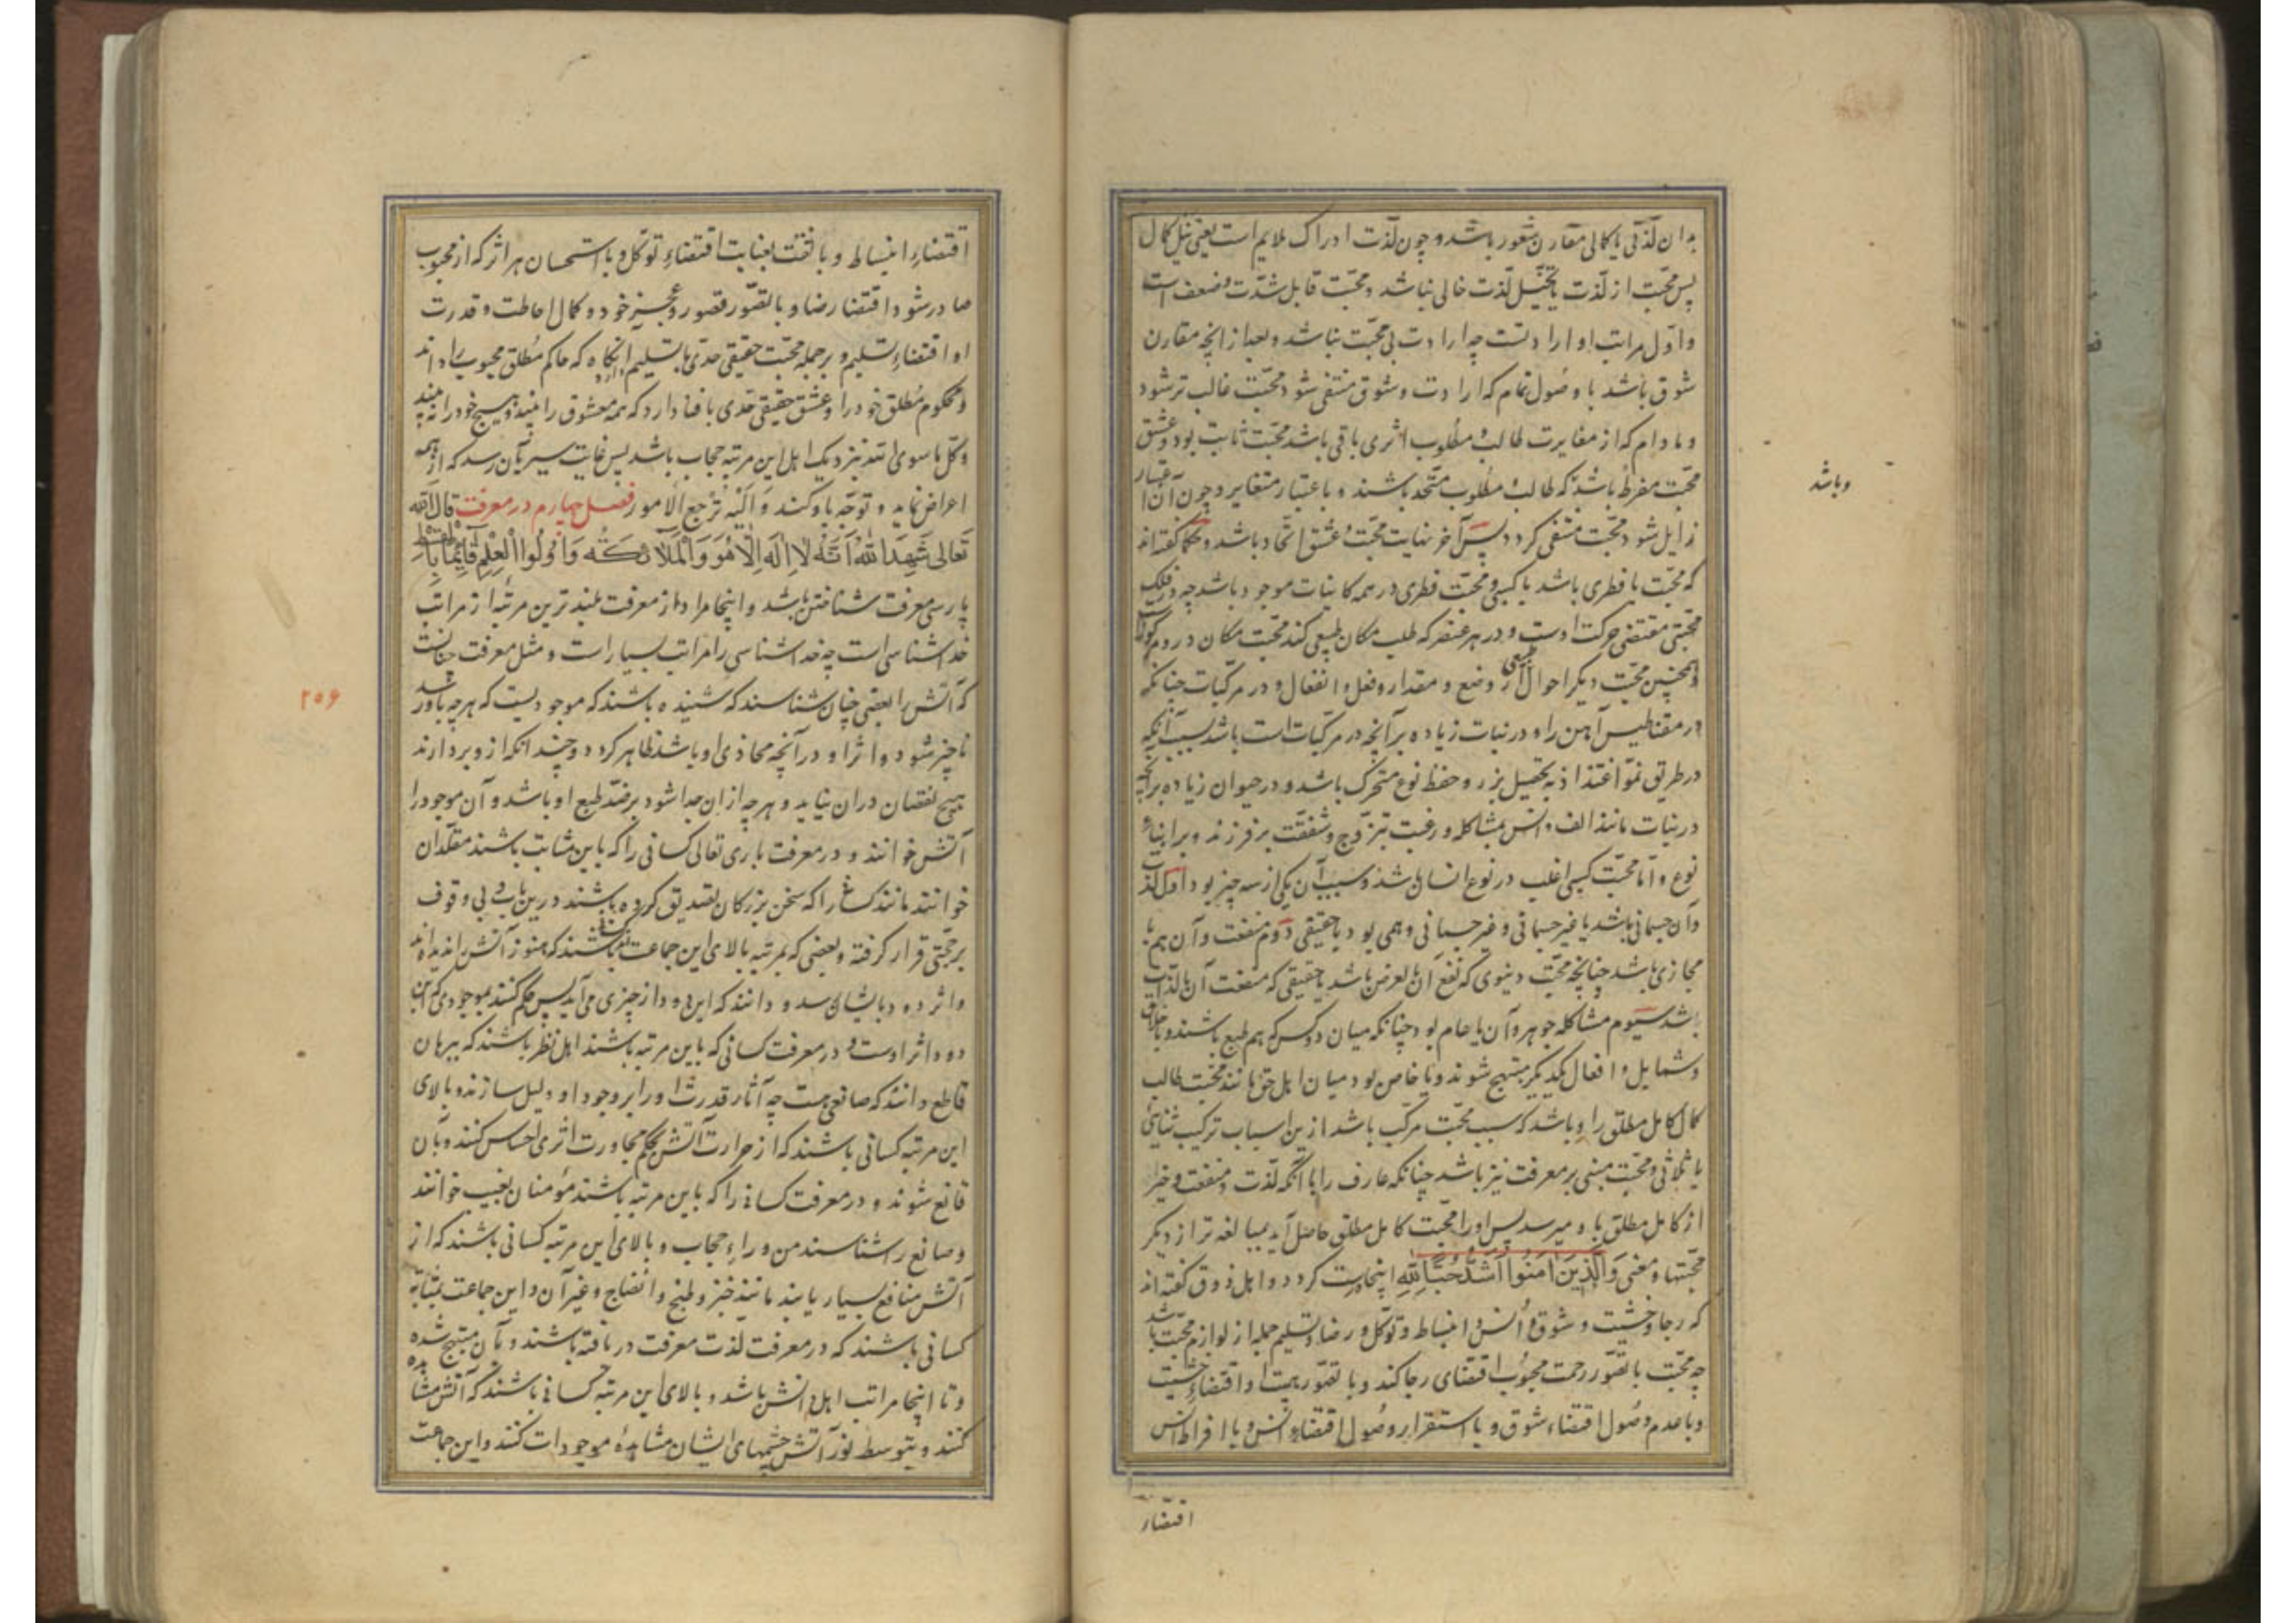 بدان لذتی یا کمالی مقارن شعور باشد و چون لذت ادراک ملایم است یعنی نیل کمال
پس محبت از لذت یا تخیل لذت خالی نباشد و محبت قابل شدت و ضعف است
و اول مراتب او ارادتست چه ارادت بی محبت نباشد و بعد از آنچه مقارن
شوق باشد با وصول تمام که ارادت و شوق منتفی شود محبت غالب تر شود
و مادام که از مغایرت طالب و مطلوب اثری باقی باشد محبت ثابت بود و عشق
محبت مفرط باشد که طالب و مطلوب متحد باشند و باعتبار متغایر و چون آن اعتبار
زایل شود محبت منتفی گردد پس آخر نهایت محبت و عشق اتحاد باشد و حکما گفته‌اند
که محبت یا فطری باشد یا کسبی و محبت فطری در همه کاینات موجود باشد چه در فلک
محبتی مقتضی حرکت اوست و در هر عنصر که طلب مکان طبیعی کند محبت مکان در و مرکوز است
و همچنین محبت دیگر احوال طبیعی از وضع و مقدار و فعل و انفعال و در مرکبات چنانکه
در مقناطیس آهن را و در نبات زیاده بر آنچه در مرکبات است باشد بسبب آنکه
در طریق نمو و اغتذا و تحصیل بزر و حفظ نوع متحرک باشد و در حیوان زیاده بر آنچه
در نبات مانند الف و انس بمشاکله و رغبت بتزوج و شفقت بر فرزند و بر ابناء
نوع و اما محبت کسبی اغلب در نوع انسان باشد و سبب آن یکی از سه چیز بود اول لذت
و آن جسمانی باشد یا غیر جسمانی و غیر جسمانی وهمی بود یا حقیقی دوم منفعت و آن هم یا
مجازی باشد چنانچه محبت دنیوی که نفع آن بالعرض باشد یا حقیقی که منفعت آن بالذات
باشد سیوم مشاکله جوهر و آن یا عام بود چنانکه میان دو کس که هم طبع باشند و باخلاق
و شمایل و افعال یکدیگر مبتهج شوند و یا خاص بود میان اهل حق مانند محبت طالب
کمال کامل مطلق را و باشد که سبب محبت مرکب باشد ازین اسباب ترکیب ثنایی
یا ثلاثی و محبت مبنی بر معرفت نیز باشد چنانکه عارف را با آنکه لذت و منفعت و خیر
از کامل مطلق باو میرسد پس او را محبت کامل مطلق حاصل آید بمبالغه تر از دیگر
محبتها و معنی وَالَّذِينَ آمَنُوا أَشَدُّ حُبًّا لِلَّهِ اینجا درست گردد و اهل ذوق گفته‌اند
که رجا و خشیت و شوق و انس و انبساط و توکل و رضا و تسلیم جمله از لوازم محبت باشد
چه محبت با تصور رحمت محبوب اقتضای رجا کند و با تصور هیبت او اقتضاء خشیت
و با عدم وصول اقتضاء شوق و با استقرار وصول اقتضاء انس و با افراط انس
اقتضاء
وباشد
اقتضاء انبساط و با ثقت بعنایت اقتضاء توکل و با استحسان هر اثر که از محبوب
صادر شود اقتضا رضا و با تصور قصور و عجز خود و کمال احاطت و قدرت
او اقتضاء تسلیم و بر جمله محبت حقیقی حدی با تسلیم دارد آنگاه که حاکم مطلق محبوب را داند
و محکوم مطلق خود را و عشق حقیقی حدی با فنا دارد که همه معشوق را بیند و هیچ خود را نبیند
و کل ما سوی الله نزدیک اهل این مرتبه حجاب باشد پس غایت سیر بآن رسد که از همه
اعراض نماید و توجه باو کند وَ اِلَيْهِ تُرجَعُ الامور فصل چهارم در معرفت قال الله
تَعالى شَهِدَ اللهُ أَنَّهُ لَا إِلَهَ إِلَّا هُوَ وَالْمَلَائِكَةُ وَأُولُوا الْعِلْمِ قَائِمًا بِالْقِسْطِ
پارسی معرفت شناختن باشد و اینجا مراد از معرفت بلندترین مرتبه از مراتب
خداشناسی است چه خداشناسی را مراتب بسیار است و مثل معرفت چنانست
که آتش را بعضی چنان شناسند که شنیده باشند که موجودیست که هر چه باو رسد
ناچیز شود و اثر او در آنچه محاذی او باشد ظاهر گردد و چندانکه ازو بردارند
هیچ نقصان در آن نیاید و هر چه از آن جدا شود بر ضد طبع او باشد و آن موجود را
آتش خوانند و در معرفت باری تعالی کسانی را که باین مثابت باشند مقلدان
خوانند مانند کسانی را که سخن بزرگان تصدیق کرده باشند درین باب بی وقوف
بر حجتی قرار گرفته و بعضی که بمرتبه بالای این جماعت باشند کسانی باشند که هنوز آتش را ندیده‌اند
و اثر دود بایشان رسد و دانند که این دود از چیزی می‌آید پس حکم کنند بموجودی که این
دود اثر اوست و در معرفت کسانی که باین مرتبه باشند اهل نظر باشند که ببرهان
قاطع دانند که صانعی هست چه آثار قدرت او را بر وجود او دلیل سازند و بالای
این مرتبه کسانی باشند که از حرارت آتش بحکم مجاورت اثری احساس کنند و بآن
قانع شوند و در معرفت کسانی را که باین مرتبه باشند مؤمنان بغیب خوانند
و صانع را شناسند من وراء حجاب و بالای این مرتبه کسانی باشند که از
آتش منافع بسیار یابند مانند خبز و طبخ و انضاج و غیر آن و این جماعت بمثابه
کسانی باشند که در معرفت لذت معرفت دریافته باشند و بآن مبتهج شده
و تا اینجا مراتب اهل دانش باشد و بالای این مرتبه کسانی باشند که آتش مشاهده
کنند و بتوسط نور آتش چشمهای ایشان مشاهدهٔ موجودات کنند و این جماعت
۲۵۶